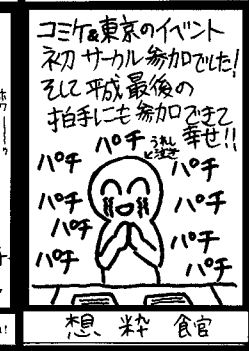 コミケ&東京のイベント
初サークル参加でした!
そして平成最後の
拍手にも参加できて
幸せ!!
うれし
泣き
パチ
パチ
パチ
パチ
パチ
パチ
パチ
パチ
パチ
想粋食官